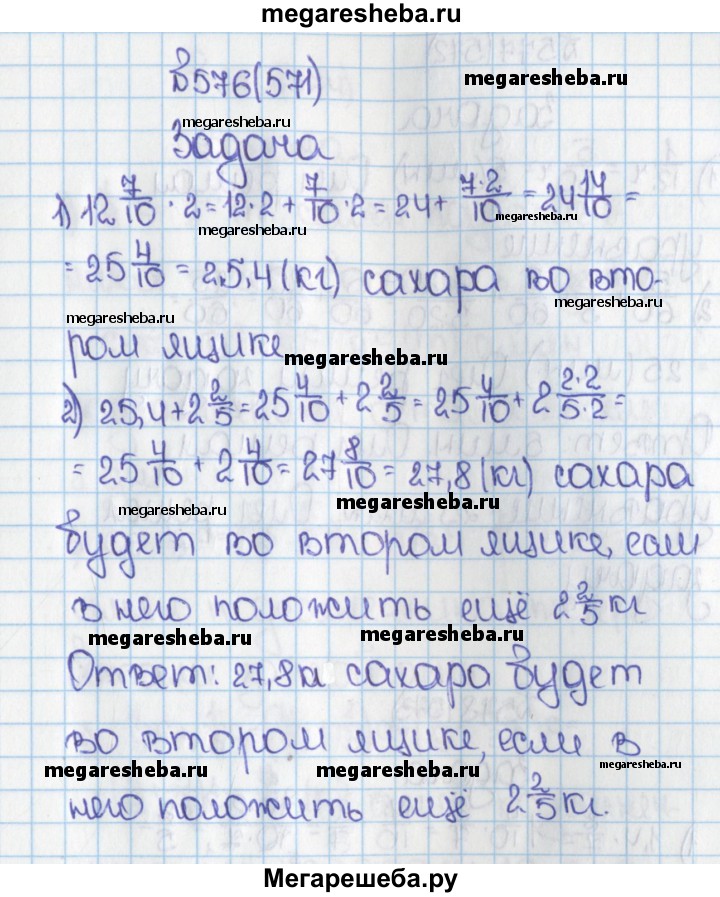 megaresheba.ru
№576(571)
megaresheba.ru
megaresheba.ru
Задача
1) 12 7/10 · 2 = 12·2 + 7/10 ·2 = 24+ 7·2/10 = 24 14/10 =
megaresheba.ru
megaresheba.ru
= 25 4/10 = 25,4 (кг) сахара во вто-
megaresheba.ru
megaresheba.ru
ром ящике
megaresheba.ru
2) 25,4+2 2/5 = 25 4/10 + 2 2/5 = 25 4/10 + 2 2·2/5·2 =
= 25 4/10 + 2 4/10 = 27 8/10 = 27,8 (кг) сахара
megaresheba.ru
megaresheba.ru
будет во втором ящике, если
в него положить ещё 2 2/5 кг
megaresheba.ru
megaresheba.ru
Ответ: 27,8 кг сахара будет
во втором ящике, если в
megaresheba.ru
megaresheba.ru
megaresheba.ru
него положить ещё 2 2/5 кг.
Мегарешеба.ру